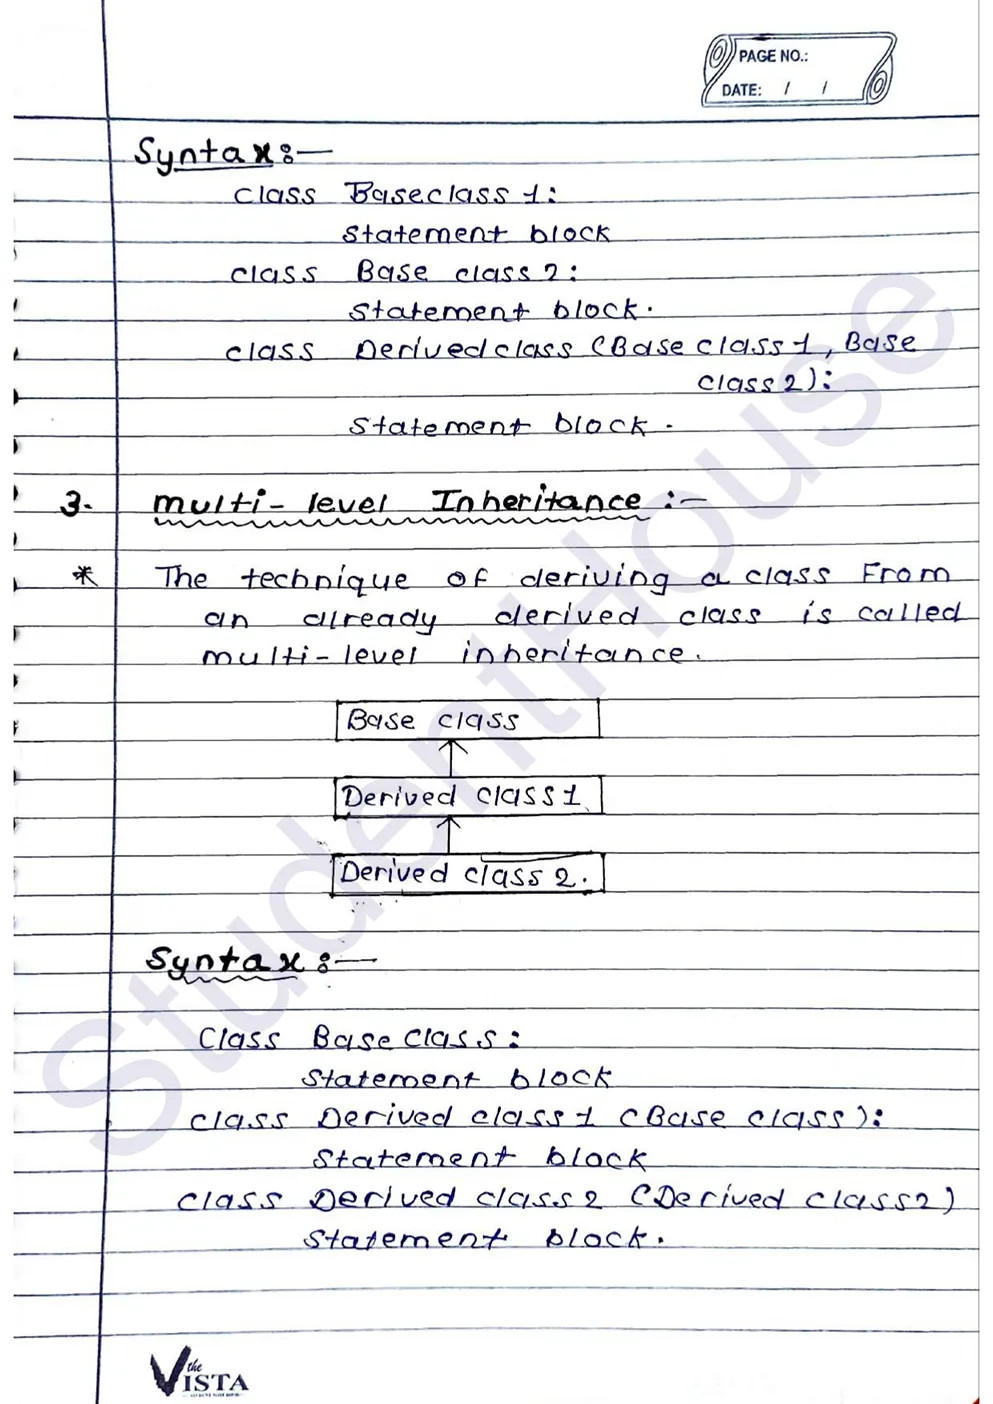 PAGE NO.:
DATE: / /
Syntax:-
class Baseclass 1:
Statement block
class Base class 2:
Statement block.
class Derived class (Base class 1, Base
class 2):
Statement block.
3. multi-level Inheritance :-
* The technique of deriving a class From
an already derived class is called
multi-level inheritance.
Base class
Derived class 1
Derived class 2.
Syntax:-
Class Base class:
Statement block
class Derived class 1 (Base class):
Statement block
class Derived class 2 (Derived class2)
Statement block.
StudentHouse
the
VISTA